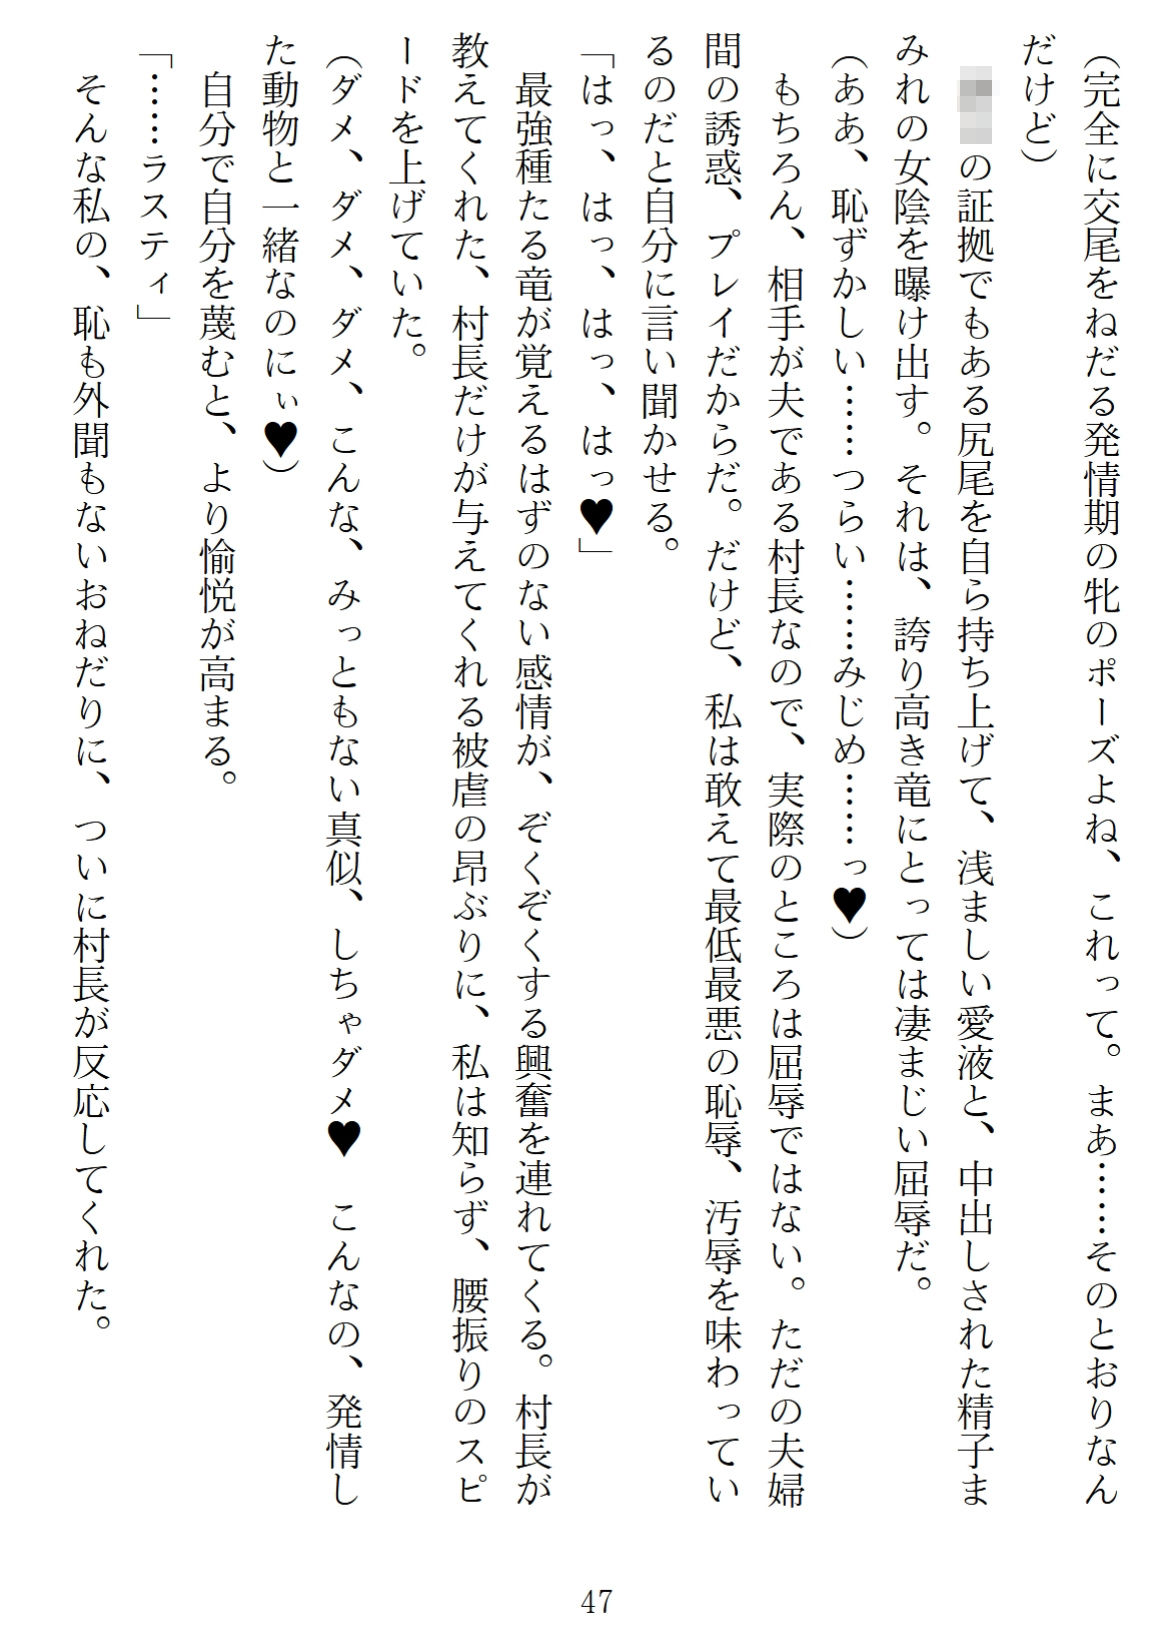 (完全に交尾をねだる発情期の牝のポーズよね、これって。まあ……そのとおりなん
だけど)
の証拠でもある尻尾を自ら持ち上げて、浅ましい愛液と、中出しされた精子ま
みれの女陰を曝け出す。それは、誇り高き竜にとっては凄まじい屈辱だ。
(ああ、恥ずかしい……つらい……みじめ……っ♥)
もちろん、相手が夫である村長なので、実際のところは屈辱ではない。ただの夫婦
間の誘惑、プレイだからだ。だけど、私は敢えて最低最悪の恥辱、汚辱を味わってい
るのだと自分に言い聞かせる。
「はっ、はっ、はっ、はっ♥」
最強種たる竜が覚えるはずのない感情が、ぞくぞくする興奮を連れてくる。村長が
教えてくれた、村長だけが与えてくれる被虐の昂ぶりに、私は知らず、腰振りのスピ
ードを上げていた。
(ダメ、ダメ、ダメ、こんな、みっともない真似、しちゃダメ♥　こんなの、発情し
た動物と一緒なのにぃ♥)
自分で自分を蔑むと、より愉悦が高まる。
「……ラスティ」
そんな私の、恥も外聞もないおねだりに、ついに村長が反応してくれた。
47